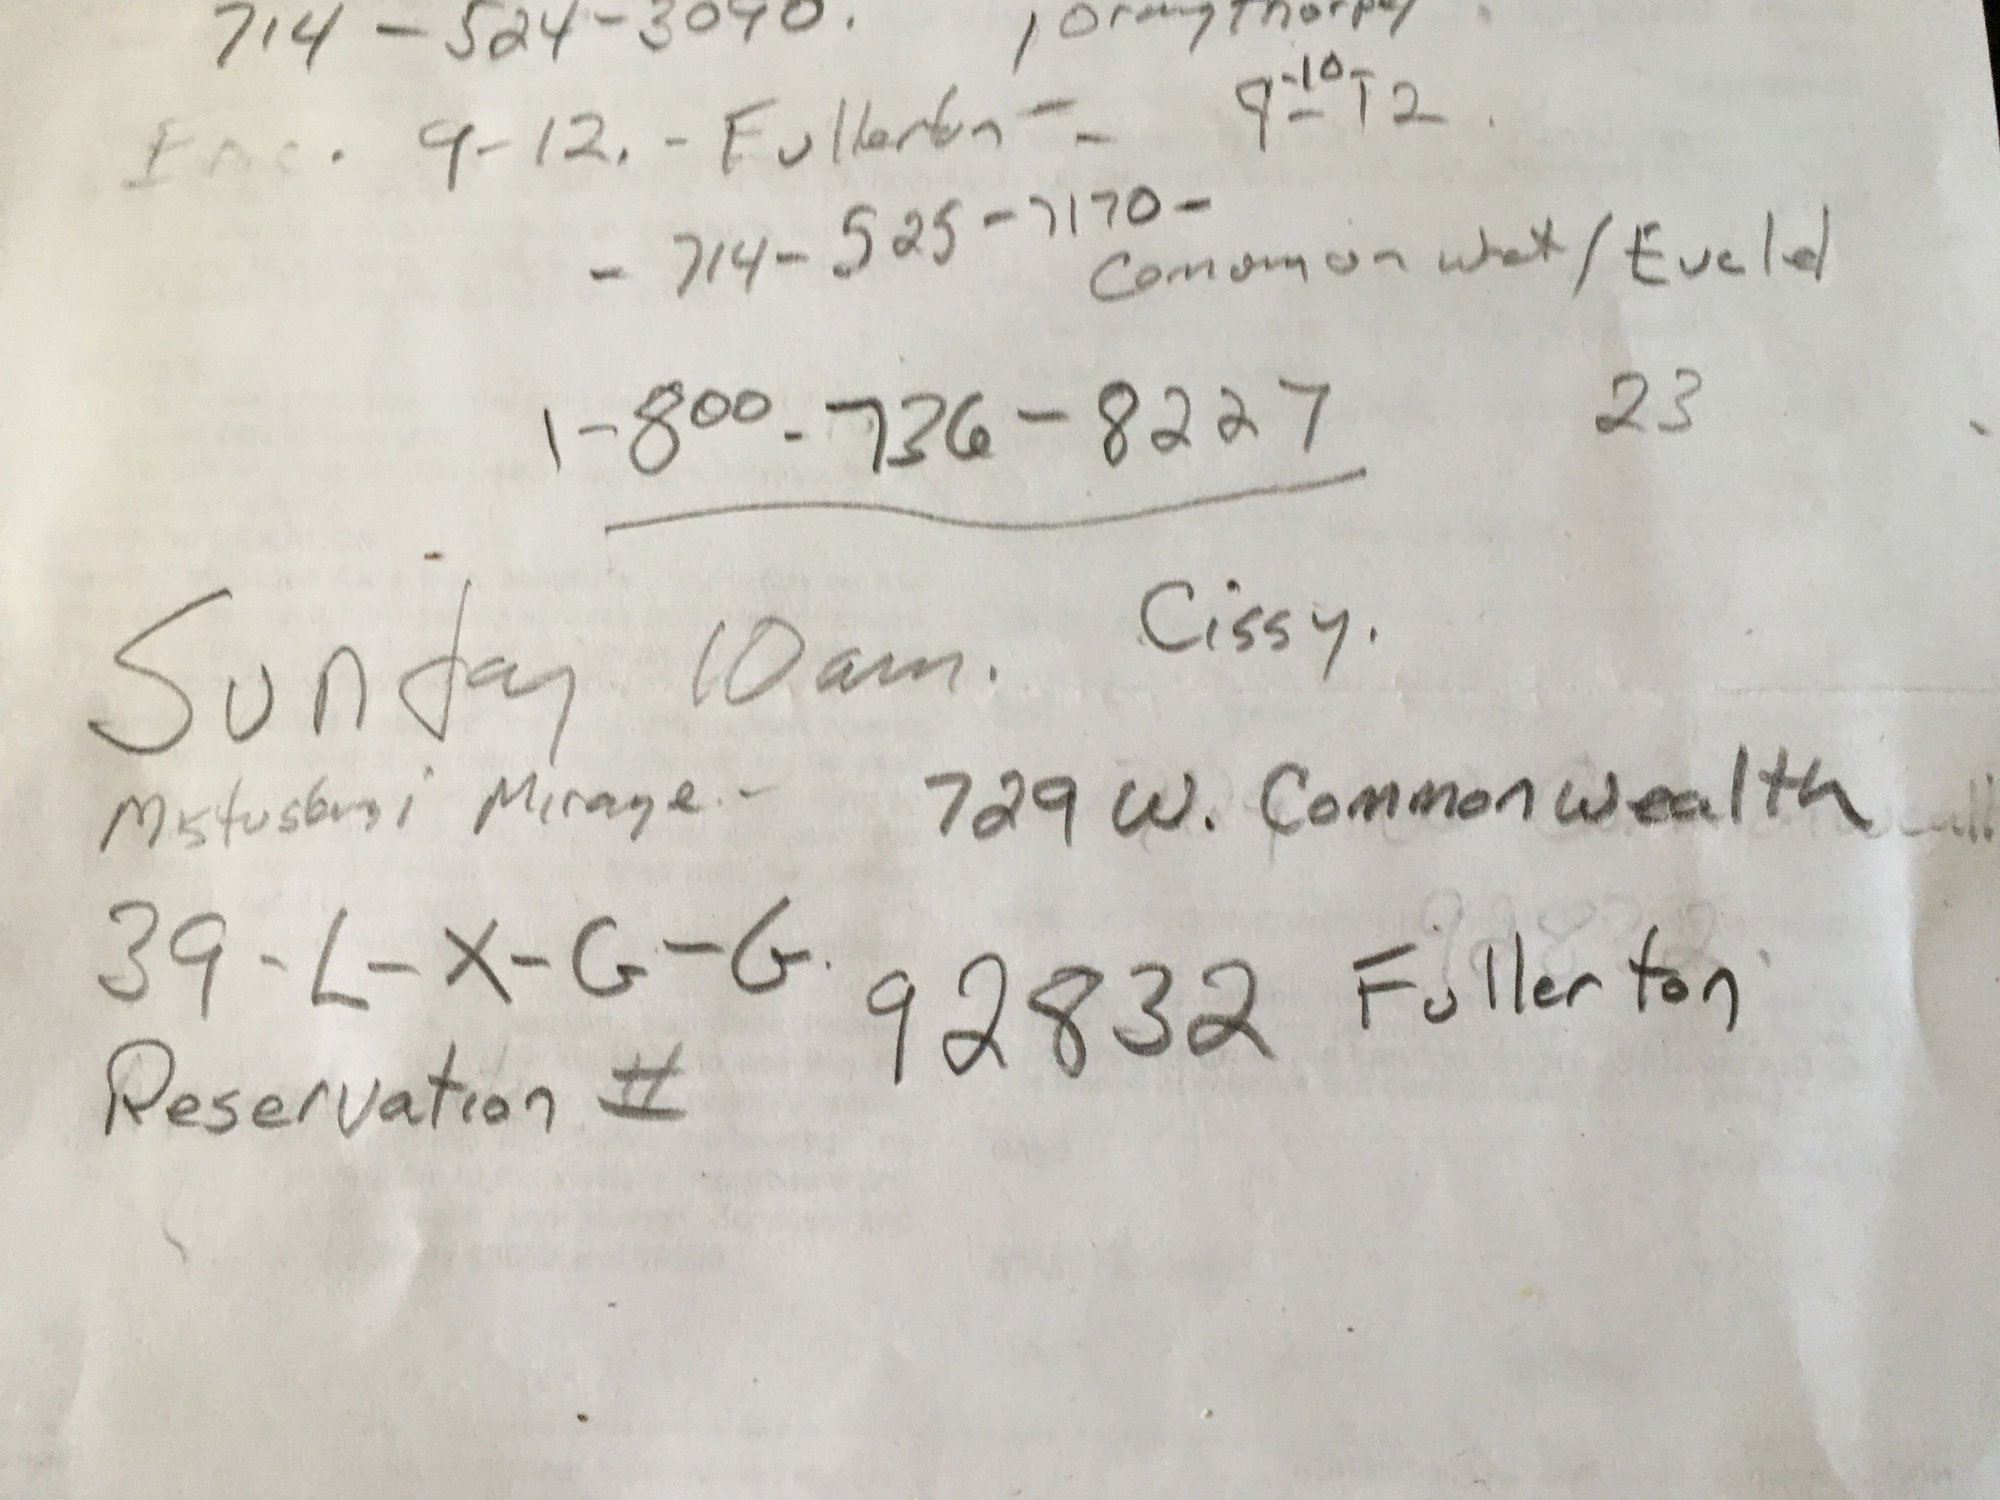 714-524-3090. / Orangthorpe
Enc. 9-12. - Fullerton - - 9-10-12.
- 714-525-7170-
Commonwet/Eucld
1-800-736-8227 23
Sunday 10am. Cissy.
Mistusbusi Mirage.- 729 W. Commonwealth
39-L-X-G-G. 92832 Fullerton
Reservation #